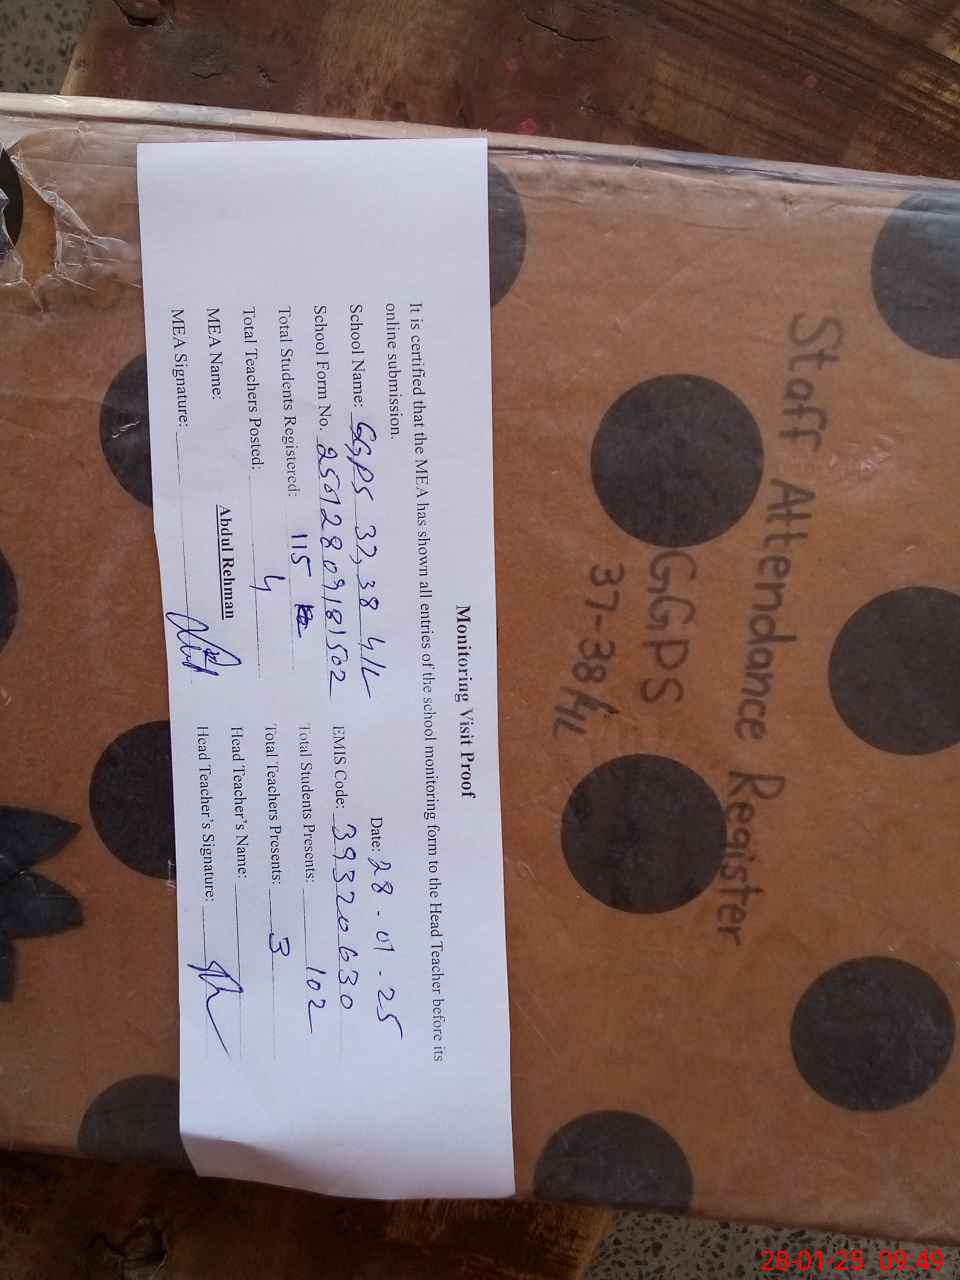 Staff Attendance Register
GGPS
37-38/4L
Monitoring Visit Proof
It is certified that the MEA has shown all entries of the school monitoring form to the Head Teacher before its
online submission.
Date: 28-01-25
School Name: GGPS 37,38 4/L
EMIS Code: 39320630
School Form No. 25012809181502
Total Students Presents: 102
Total Students Registered: 115
Total Teachers Presents: 3
Total Teachers Posted: 4
Head Teacher's Name:
MEA Name: Abdul Rehman
Head Teacher's Signature:
MEA Signature:
28-01-25 09:49